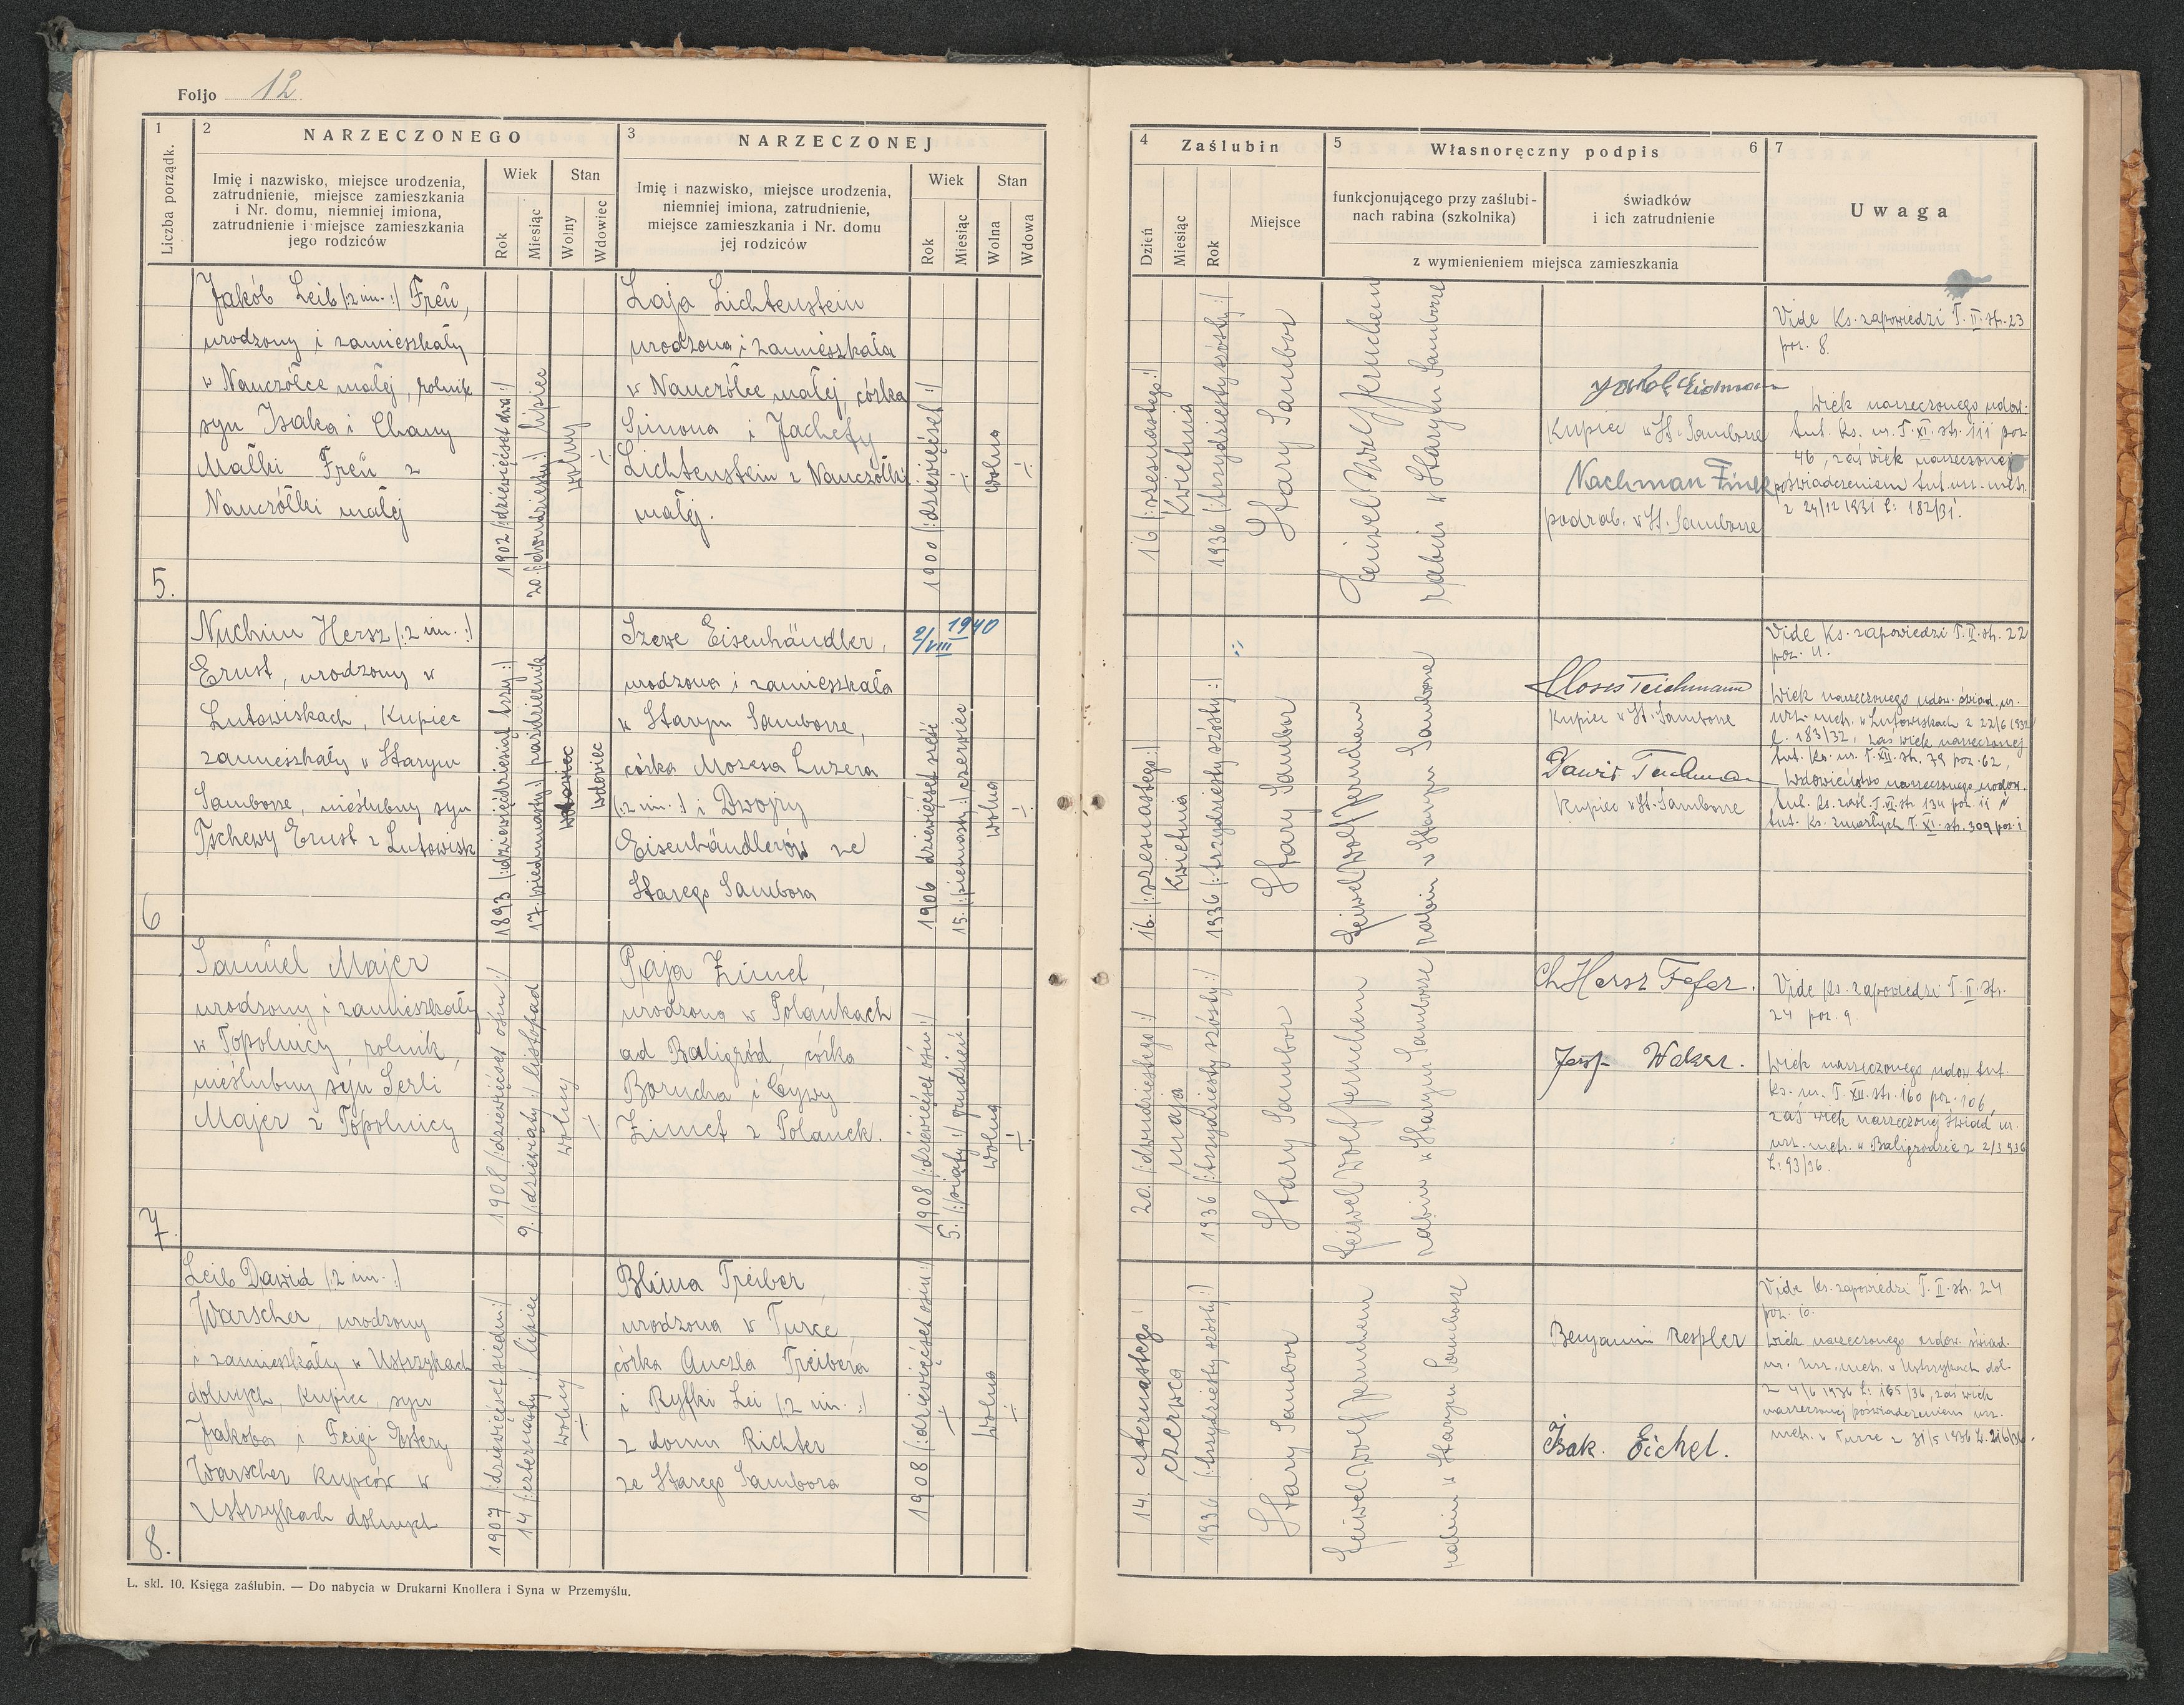 Foljo 12
1
Liczba porządk.
2
NARZECZONEGO
Imię i nazwisko, miejsce urodzenia,
zatrudnienie, miejsce zamieszkania
i Nr. domu, niemniej imiona,
zatrudnienie i miejsce zamieszkania
jego rodziców
Wiek
Rok
Miesiąc
Stan
Wolny
Wdowiec
3
NARZECZONEJ
Imię i nazwisko, miejsce urodzenia,
niemniej imiona, zatrudnienie,
miejsce zamieszkania i Nr. domu
jej rodziców
Wiek
Rok
Miesiąc
Stan
Wolna
Wdowa
4
Zaślubin
Dzień
Miesiąc
Rok
Miejsce
5
Własnoręczny podpis
6
funkcjonującego przy zaślubi-
nach rabina (szkolnika)
świadków
i ich zatrudnienie
z wymienieniem miejsca zamieszkania
7
Uwaga
5.
Jakób Leib /:2 im.:/ Freü,
urodzony i zamieszkały
w Nanczółce małej, rolnik
syn Isaka i Chany
Małki Freü z
Nanczółki małej
1902 /:dziewięćset dwa:/
20. /:dwudziesty:/ lipiec
wolny
-:-
Laja Lichtenstein
urodzona i zamieszkała
w Nanczółce małej, córka
Simona i Jachety
Lichtenstein z Nanczółki
małej.
1900 /:dziewięćset:/
-:-
wolna
-:-
16 /:szesnastego:/
Kwietnia
1936 /:trzydziesty szósty:/
Stary Sambor
Leiwel Wolf Jeruchem
rabin w Starym Samborze
Jakob Eichman
Kupiec w St. Samborze
Nachman Fink
podrab. w St. Samborze
Vide Ks. zapowiedzi T. II. str. 23
poz. 8.
Wiek narzeczonego udow.
tut. Ks. ur. T. XI. str. 111 poz.
46, zaś wiek narzeczonej
poświadczeniem tut. urz. metr.
z 24/12 1931 L: 182/31.
6
Nuchim Hersz /:2 im.:/
Ernst, urodzony w
Lutowiskach, Kupiec
zamieszkały w Starym
Samborze, nieślubny syn
Tschewy Ernst z Lutowisk
1893 /:dziewięćdziesiąt trzy:/
17. /:siedemnasty:/ październik
wdowiec
Szewe Eisenhändler,
urodzona i zamieszkała
w Starym Samborze,
córka Mozesa Luzera
/:2 im.:/ i Dwojry
Eisenhändlerów ze
Starego Sambora
2/VIII 1940
1906 dziewięćset sześć
15. /:piętnasty:/ czerwiec
wolna
-:-
16. /:szesnastego:/
Kwietnia
1936 /:trzydziesty szósty:/
Stary Sambor
Leiwel Wolf Jeruchem
rabin w Starym Samborze
Moses Teichmann
Kupiec w St. Samborze
Dawid Teichman
Kupiec w St. Samborze
Vide Ks. zapowiedzi T. II. str. 22
poz. 4.
Wiek narzeczonego udow. świad. ur.
urz. metr. w Lutowiskach z 22/6 1932
L. 183/32, zaś wiek narzeczonej
tut. Ks. ur. T. XII. str. 79 poz. 62,
Wdowieństwo narzeczonego udow.
tut. Ks. zaśl. T. VI. str. 134 poz. 11
tut. Ks. zmarłych T. XI. str. 309 poz. 1
7.
Samuel Majer
urodzony i zamieszkały
w Topolnicy, rolnik,
nieślubny syn Serli
Majer z Topolnicy
1908 /:dziewięćset ośm:/
9. /:dziewiąty:/ listopad
wolny
-:-
Paja Zimet,
urodzona w Polankach
ad Baligród, córka
Borucha i Cywy
Zimet z Polanek.
1908 /:dziewięćset ośm:/
5. /:piąty:/ grudzień
wolna
-:-
20. /:dwudziestego:/
maja
1936 /:trzydziesty szósty:/
Stary Sambor
Leiwel Wolf Jeruchem
rabin w Starym Samborze
Ch Hersz Fefer.
Vide Ks. zapowiedzi T. II. str.
24 poz. 9.
Wiek narzeczonego udow. tut.
Ks. ur. T. XII. str. 160 poz. 106
zaś wiek narzeczonej świad ur.
urz. metr. w Baligrodzie z 2/3 936
L: 93/36.
8.
Leib Dawid /:2 im.:/
Warscher, urodzony
i zamieszkały w Ustrzykach
dolnych, Kupiec, syn
Jakóba i Feigi Estery
Warscher Kupców w
Ustrzykach dolnych
1907 /:dziewięćset siedem:/
14 /:czternasty:/ lipiec
wolny
-:-
Blima Treiber,
urodzona w Turce,
córka Anczla Treibera
i Ryfki Lei /:2 im.:/
z domu Richter
ze Starego Sambora
1908 /:dziewięćset ośm:/
-:-
wolna
-:-
14. czternastego
czerwca
1936 /:trzydziesty szósty:/
Stary Sambor
Leiwel Wolf Jeruchem
rabin w Starym Samborze
Benjamin Respler
Isak. Eichel.
Vide Ks. zapowiedzi T. II. str. 24
poz. 10.
Wiek narzeczonego udow. świad.
ur. urz. metr. w Ustrzykach dol.
z 4/6 1936 L: 165/36, zaś wiek
narzeczonej poświadczeniem urz.
metr. w Turce z 31/5 1936 L. 216/36.
L. skl. 10. Księga zaślubin. — Do nabycia w Drukarni Knollera i Syna w Przemyślu.